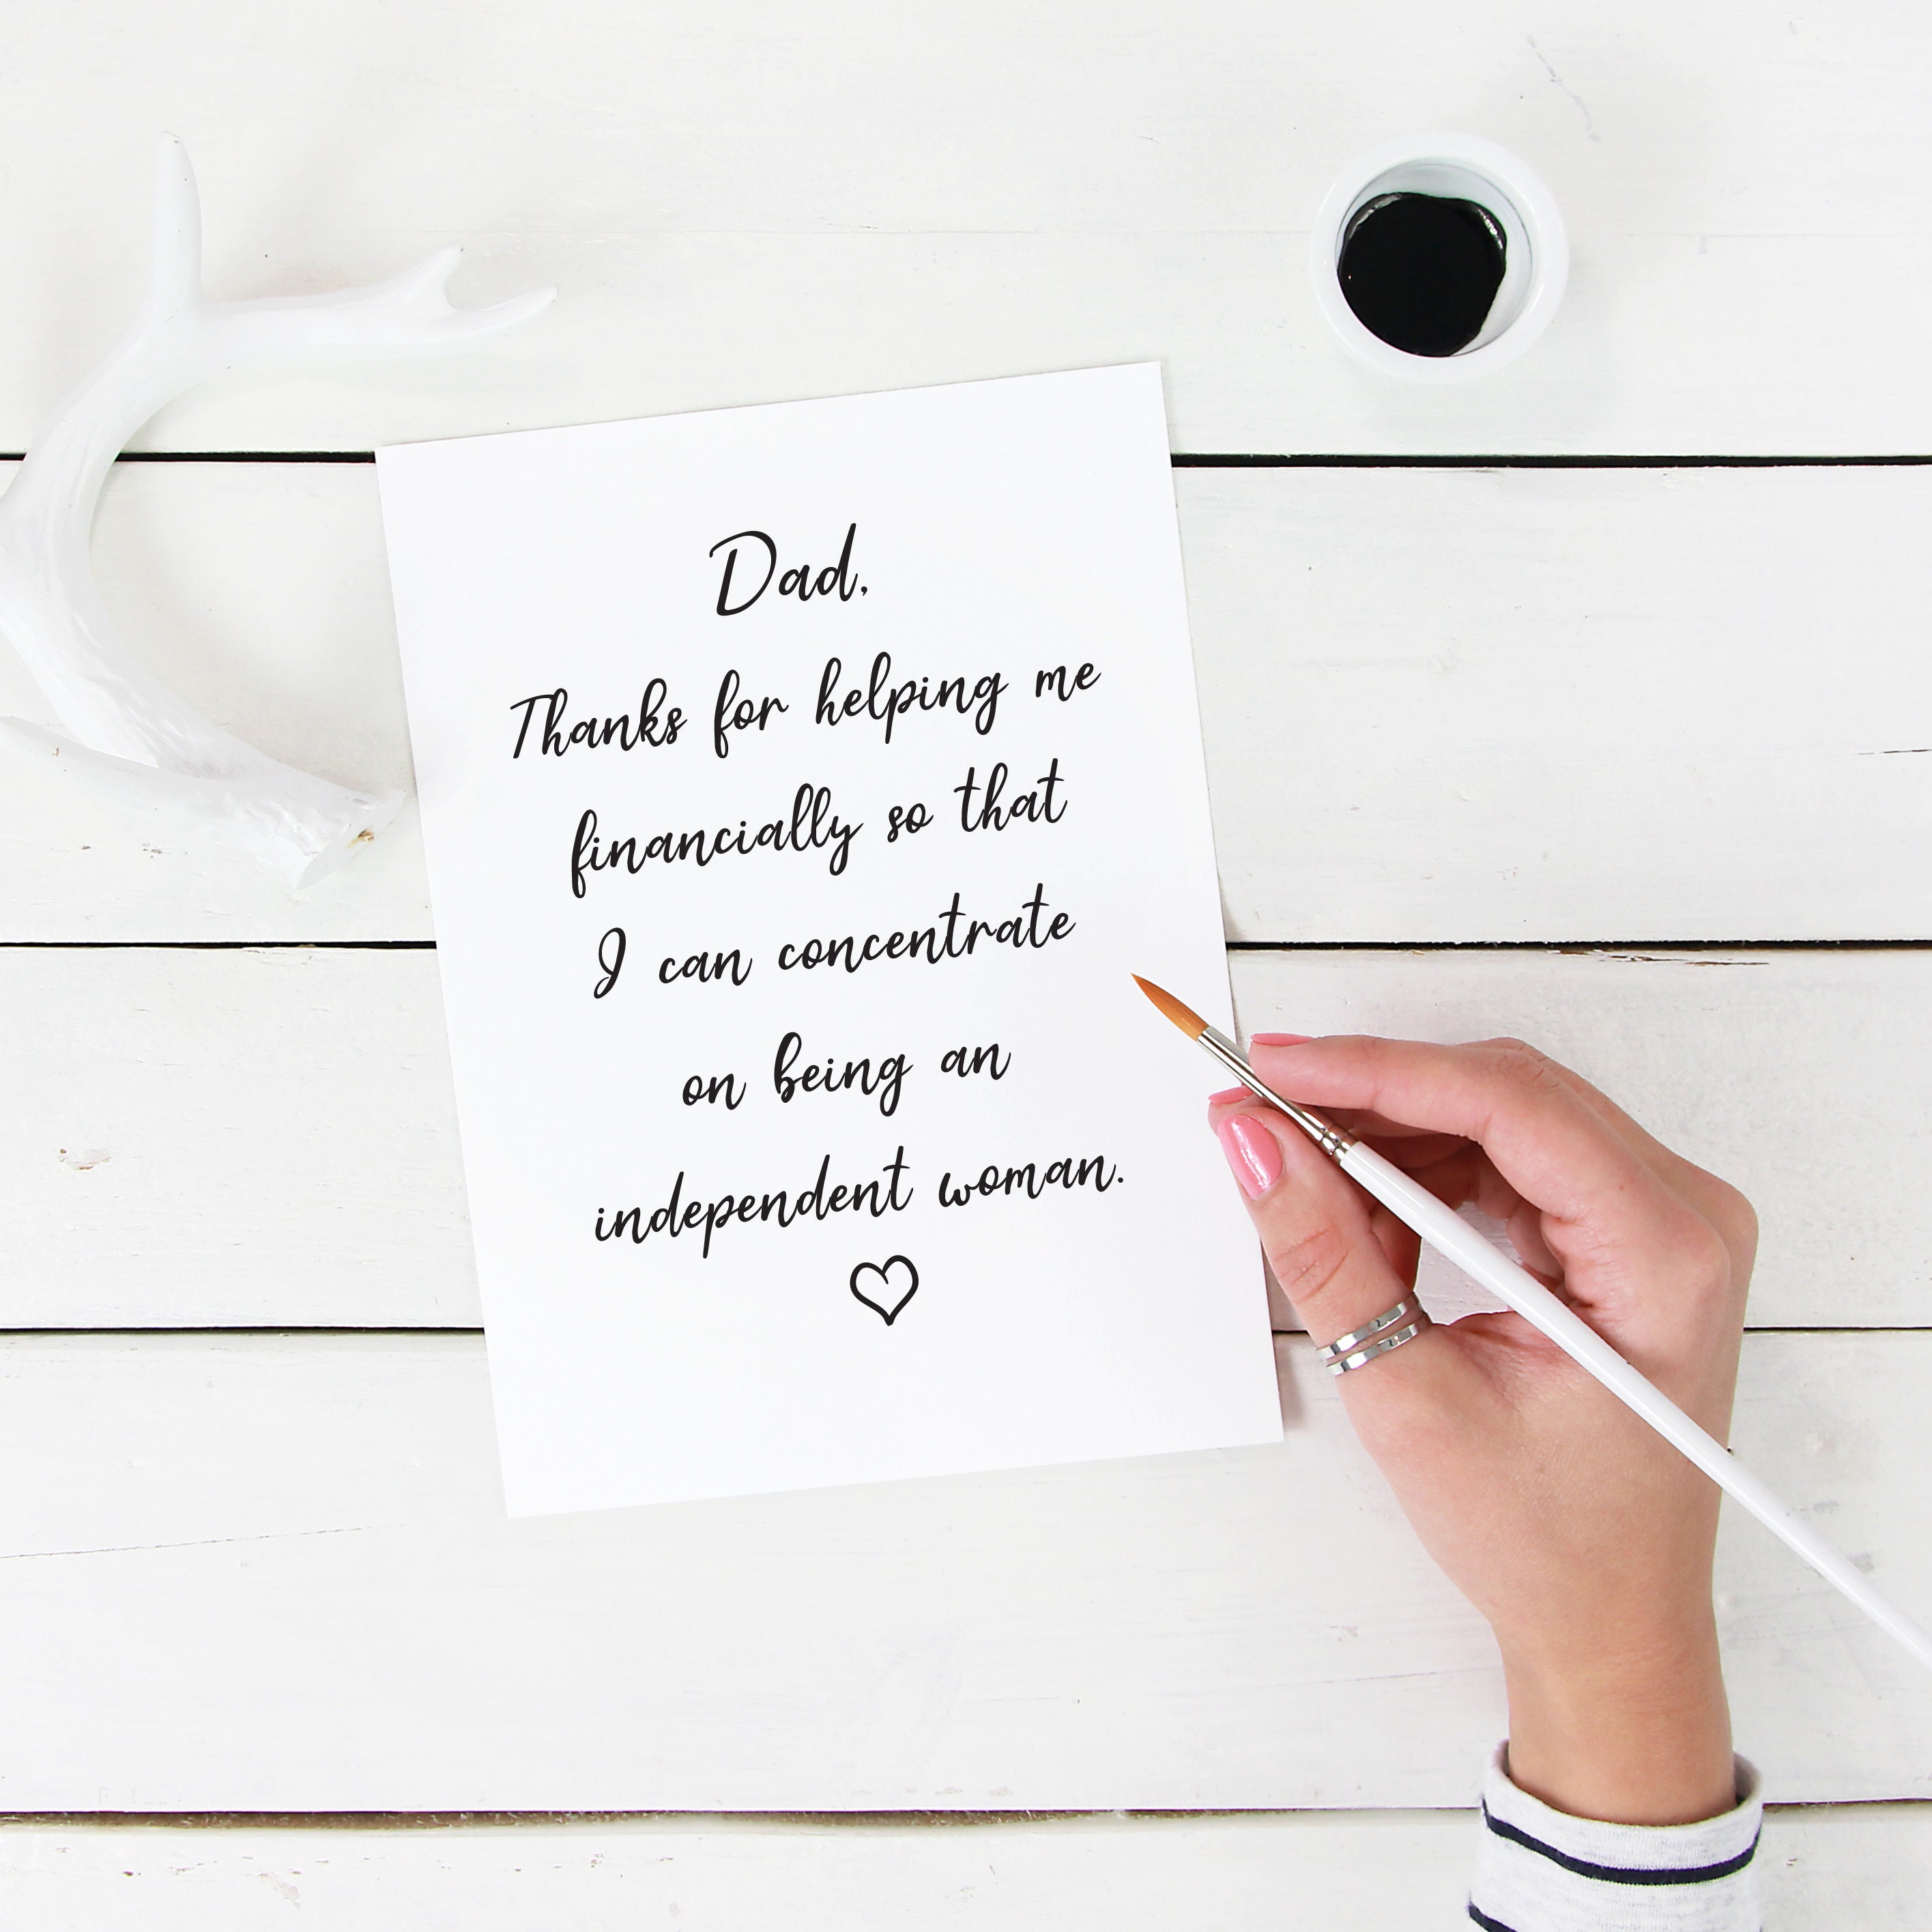 Dad,
Thanks for helping me
financially so that
I can concentrate
on being an
independent woman.